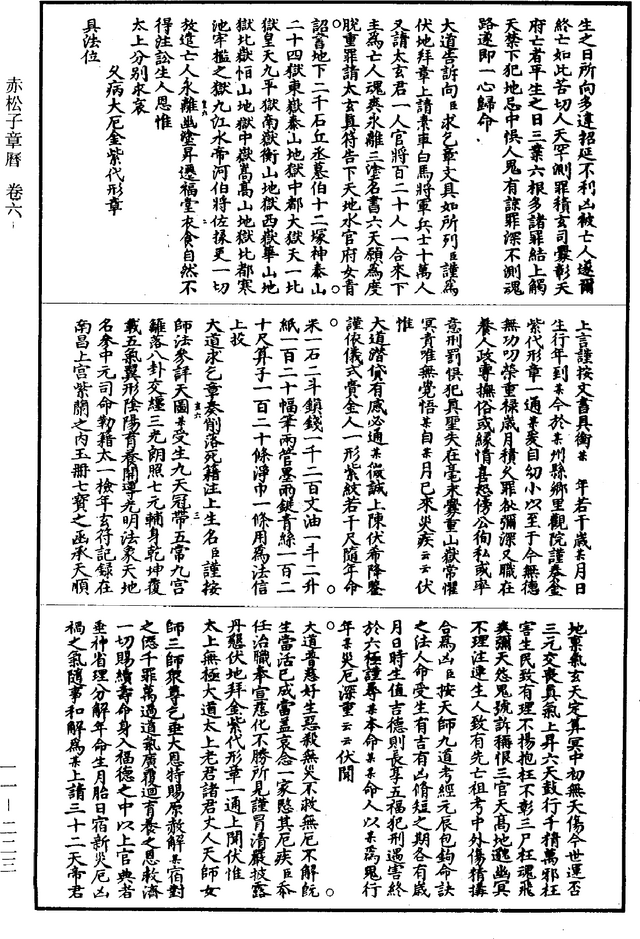 生之日所向多違招延不利凶被亡人遂爾
終亡如此苦切人天罕測罪積玄司釁彰天
府亡者平生之日三業六根多諸罪結上觸
天禁下犯地忌中悞人鬼有諒罪深不測魂
路遂即一心歸命
大道告訴向臣求乞章文具如所列臣謹為
伏地拜章上請素車白馬將軍兵士十萬人
又請太玄君一人官將百二十人一合來下
主為亡人魂爽永離三塗名書六天願為度
脫重罪請太玄真符告下天地水官府女青
詔書地下二千石丘丞墓伯十二塚神泰山
二十四獄東嶽泰山地獄中都大獄天一北
獄皇天九平獄南嶽衡山地獄西嶽華山地
獄北嶽恒山地獄中嶽嵩高山地獄北都寒
池牢檻之獄九江水帝河伯將佐掾吏一切
放造亡人永離幽塗昇遷福堂衣食自然不
得注訟生人恩惟
太上分別求哀
具法位
久病大厄金紫代形章
上言謹按文書具銜某 年若干歲某月日
生行年到某今於某州縣鄉里觀院謹奏金
紫代形章一通某爰自幼小以至于今無德
無功叨榮重祿歲月積久罪釁彌深又職在
養人政專撫俗或緣情喜怒傷公徇私或率
意刑罰悞犯具聖失在毫末釁重山嶽常懼
冥責唯無覺悟某自某月已來災疾云云伏
惟
大道潛貸有感必通某傾誠上陳伏希降鑒
謹依儀式賫金人一形紫紋若干尺隨年命
米一石二斗鎮錢一千二百文油一斗二升
紙一百二十幅筆兩管墨兩鋌青絲一百二
十尺算子一百二十條淨巾一條用為法信
上投
大道求乞章奏削落死籍注上生名臣謹按
師法參詳天圖某受生九天冠帶五常九宮
羅落八卦交纏三光朗照七元輔身乾坤覆
載五氣翼形陰陽育養開導光明法象天地
名參中元司命勒籍太一撿年玄符記錄在
南昌上宮紫關之內玉冊七寶之函承天順
地稟氣玄天定算冥中初無夭傷今世運否
三元交喪真氣上昇六天鼓行千精萬邪枉
害生民致有理不揚抱枉不彰三尸枉魂飛
爽彌天怨鬼號訴稱恨三官天高地邈幽冥
不理注連生人致有先亡祖考中外傷精搆
合為凶臣按天師九道考經元辰包鉤命訣
之法人命受生有吉有凶脩短之期各有歲
月日時生值吉德則長享五福犯刑遇害終
於六極謹尋某本命某某命人以某為鬼行
年某災厄深重云云伏聞
大道普慈好生惡殺無災不救無厄不解既
生當活已成當益哀念一家愍其厄疾臣忝
任治職奉宣慈化不勝所見謹冒清嚴披露
丹懇伏地拜金紫代形章一通上聞伏惟
太上無極大道太上老君諸君丈人天師女
師三師眾尊乞垂大恩特賜原赦解某宿對
之愆千罪萬過道氣廣覆迴育養之恩救濟
一切賜續壽命身入福德之中以上官典者
垂神省理分解年命生月胎日宿新災厄凶
禍之氣隨事和解為某上請三十二天帝君
赤松子章曆 卷六
一一—二二三